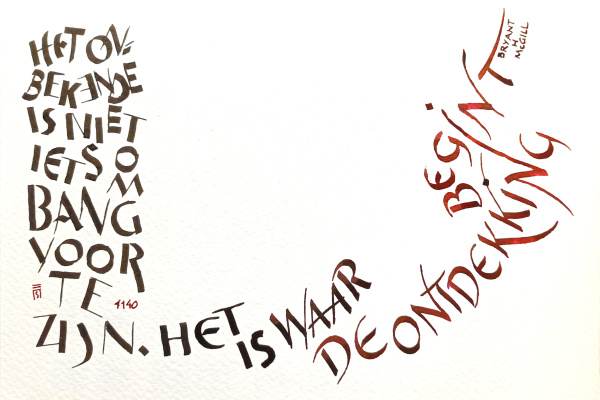 HET ON-
BEKENDE
IS NIET
IETS OM
BANG
VOOR
TE
ZIJN. HET IS WAAR DE ONTDEKKING BEGINT
BRYANT
H.
McGILL
4140